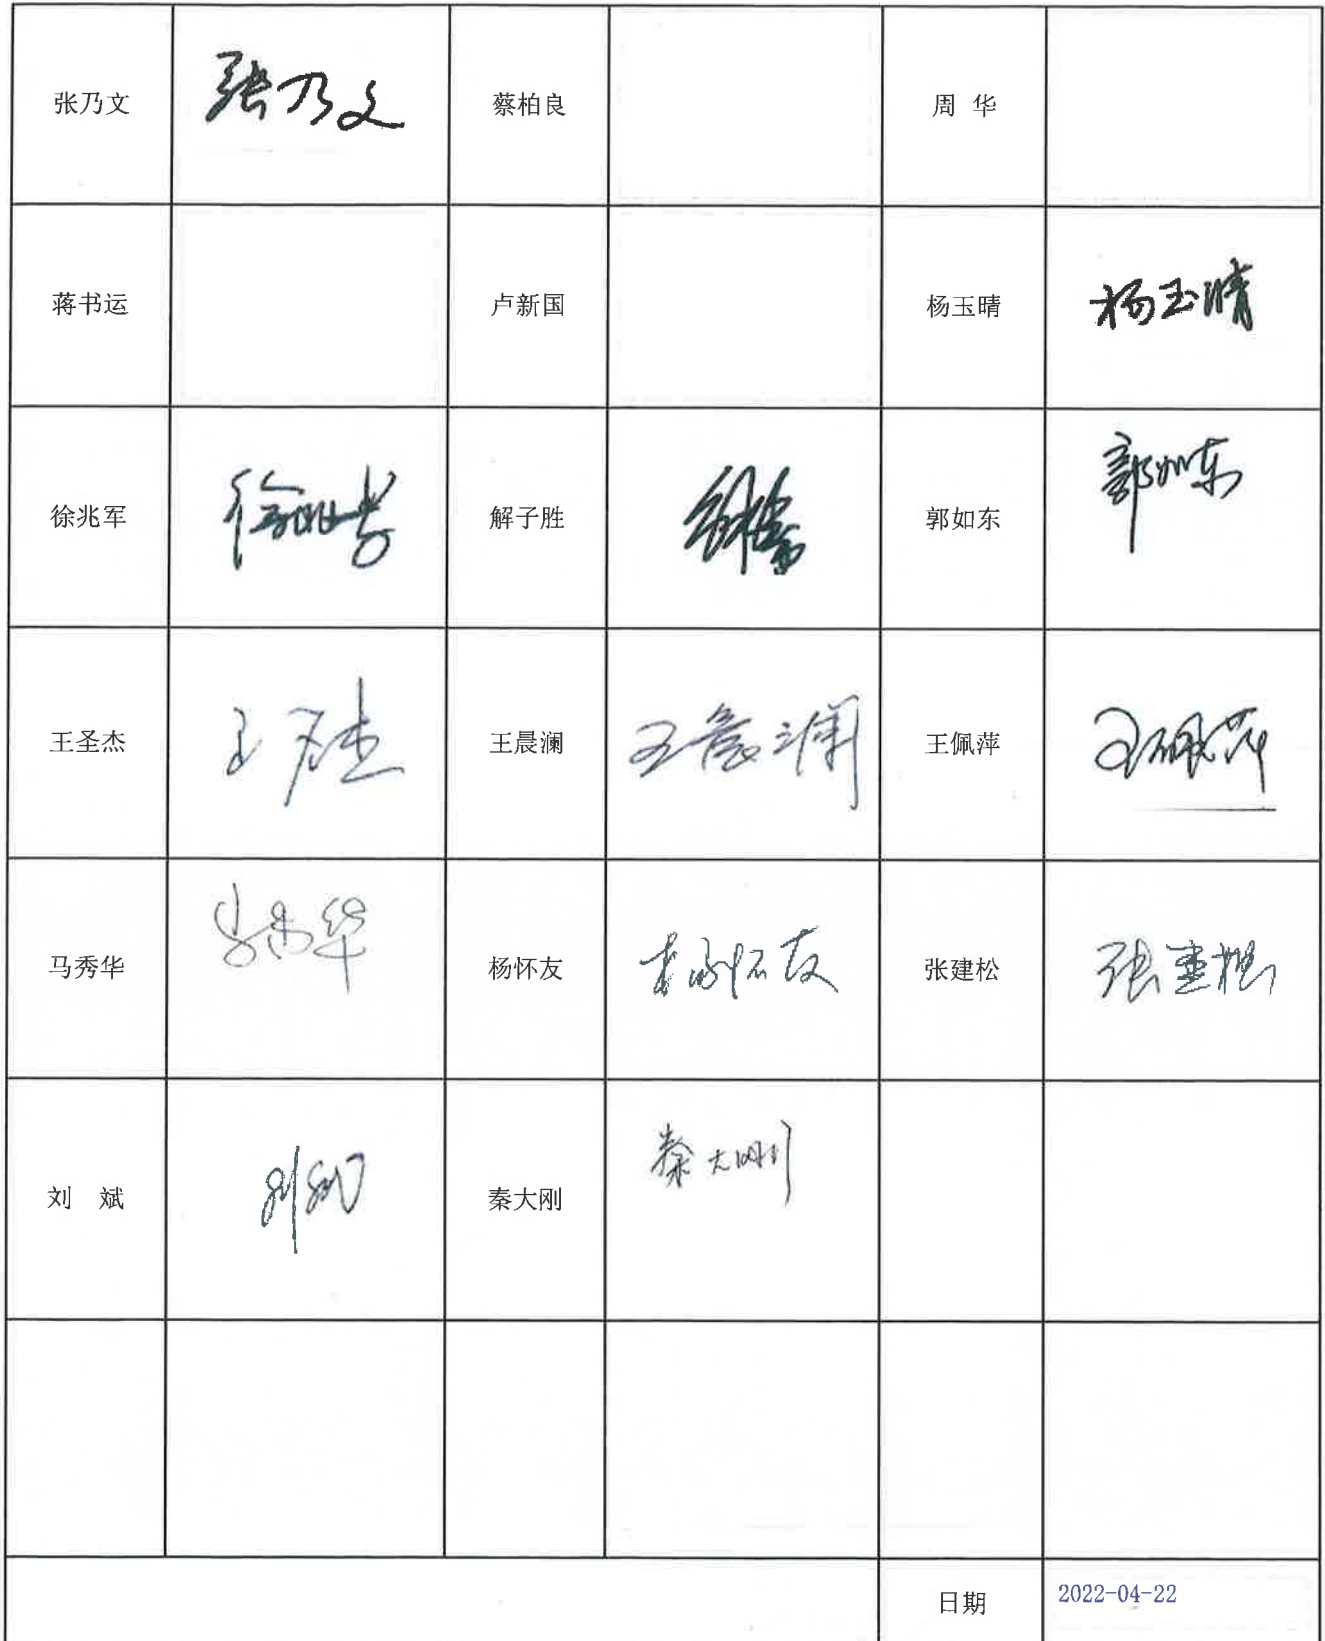 张乃文 张乃文 蔡柏良 周 华
蒋书运 卢新国 杨玉晴 杨玉晴
徐兆军 徐兆军 解子胜 解子胜 郭如东 郭如东
王圣杰 王圣杰 王晨澜 王晨澜 王佩萍 王佩萍
马秀华 马秀华 杨怀友 杨怀友 张建松 张建松
刘 斌 刘斌 秦大刚 秦大刚
日期 2022-04-22